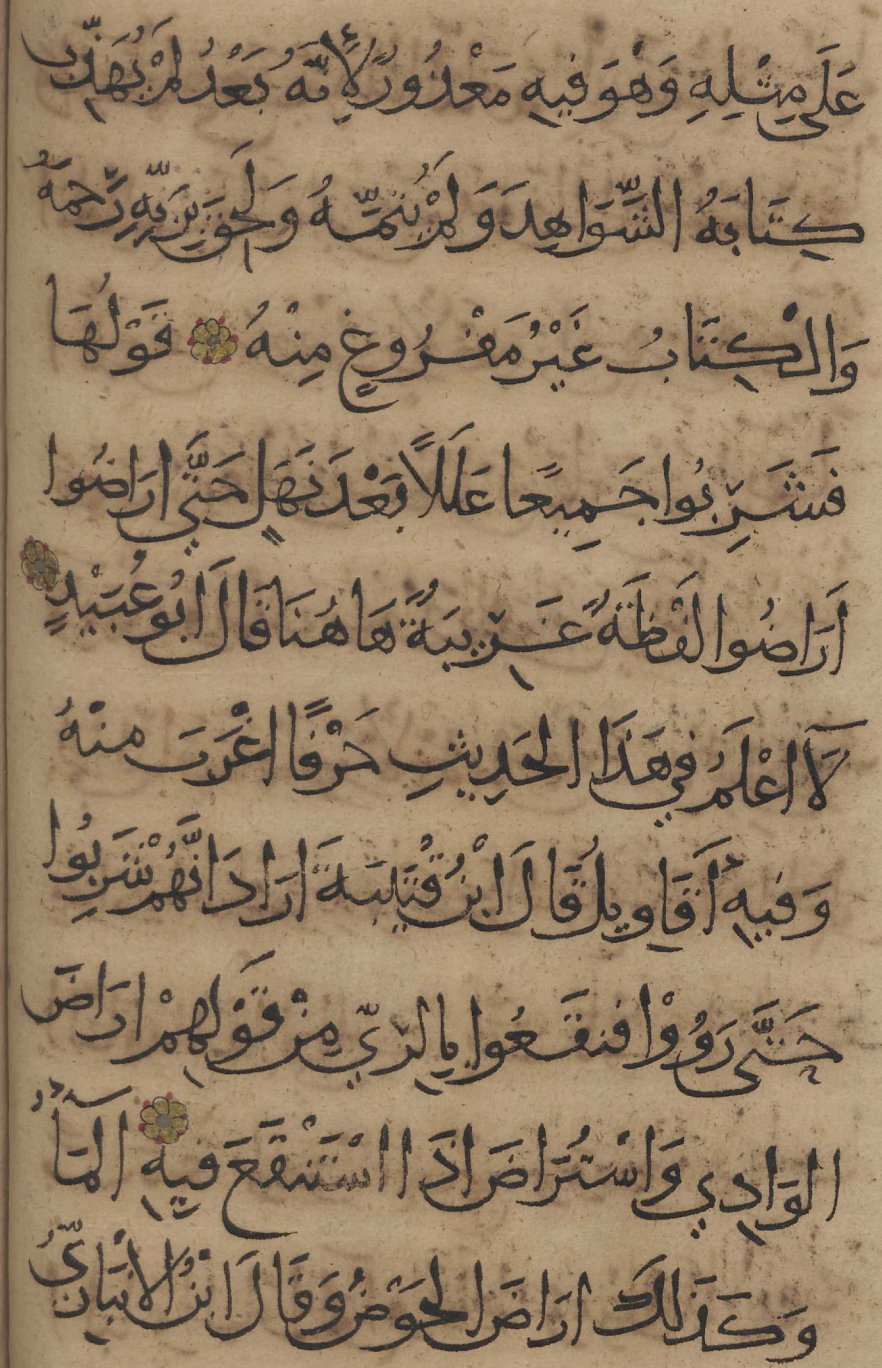 عَلَى مِثْلِهِ وَهْوَ فِيهِ مَعْذُورٌ لِأَنَّهُ بَعْدُ لَمْ يُهَذِّبْ
كِتَابَهُ الشَّوَاهِدَ وَلَمْ يُتِمَّهُ وَلَحِقَ بِرَبِّهِ رَحْمَةُ
وَالْكِتَابُ غَيْرُ مَفْرُوغٍ مِنْهُ قَوْلُهَا
فَشَرِبُوا جَمِيعًا عَلَلًا بَعْدَ نَهَلٍ حَتَّى ارَاضُوا
أَرَاضُوا لَفْظَةٌ غَرِيبَةٌ هَاهُنَا قَالَ ابُو عُبَيْدٍ
لَآ اعْلَمُ فِي هَذَا الحَدِيثِ حَرْفًا اغْرَبَ منْهُ
وَفيهِ أَقَاوِيلُ قَالَ ابْنُ قُتَيْبَةَ ارَادَ انَّهُمْ شَرِبُوا
حَتَّى رَوُوْا فنقَعُوا بِالرِّيِّ مِنْ قَوْلِهِمْ ارَاضَ
الوَادِي وَاسْتَرَاضَ اذَا اسْتَنْقَعَ فيهِ المَآءُ
وَكَذَلِكَ ارَاضَ الحَوْضُ وَقَالَ ابْنُ الانْبَارِيِّ